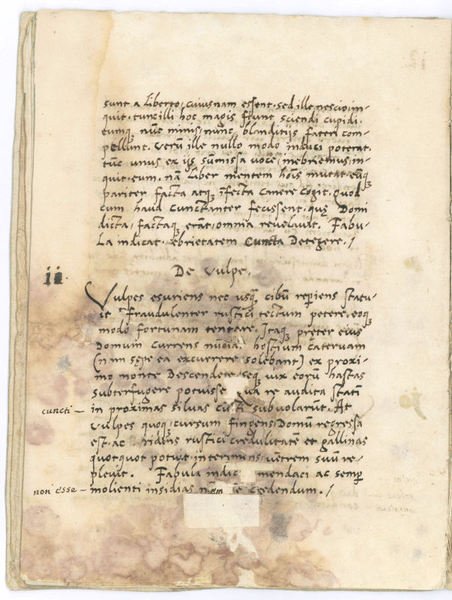 sunt a Liberto, cuiusnam essent. sed ille nescio, in-
quit. tunc illi hoc magis fiunt sciendi cupidi,
eumq; nunc minis, nunc blanditijs fateri com-
pellunt. Verū ille nullo modo induci poterat.
tūc unus ex iis, sumissa voce, inebriemus, in-
quit, eum, nā Liber mentem hois mutat, eūq;
pariter facta atq; īfecta canere cogit. Quod
cum haud cunctanter fecissent, quę Domi
dicta, factaq; erāt, omnia revelavit. Fabu-
la indicat, ebrietatem cuncta Detegere. /
ii
De Vulpe.
Vulpes esuriens nec usq; cibū reperiens statu-
it se fraudulenter rustici tectum petere, eoq;
modo fortunam tentare. Itaq; preter eius
Domum currens nūciat, hostium catervam
(nam sępe ea excurrere solebant) ex proxi-
mo monte Descendere, seq; vix eorū hastas
subterfugere potuisse. qua re audita statī
in proximas silvas subvolarūt. At
cuncti –
Vulpes quoq; cursum fingens, Domū regressa
est, ac rustici credulitate et gallinas
quotquot potuit interimens, vētrem suū re-
plevit. Fabula mendaci ac semp
non esse –
molienti insidias credendum. /